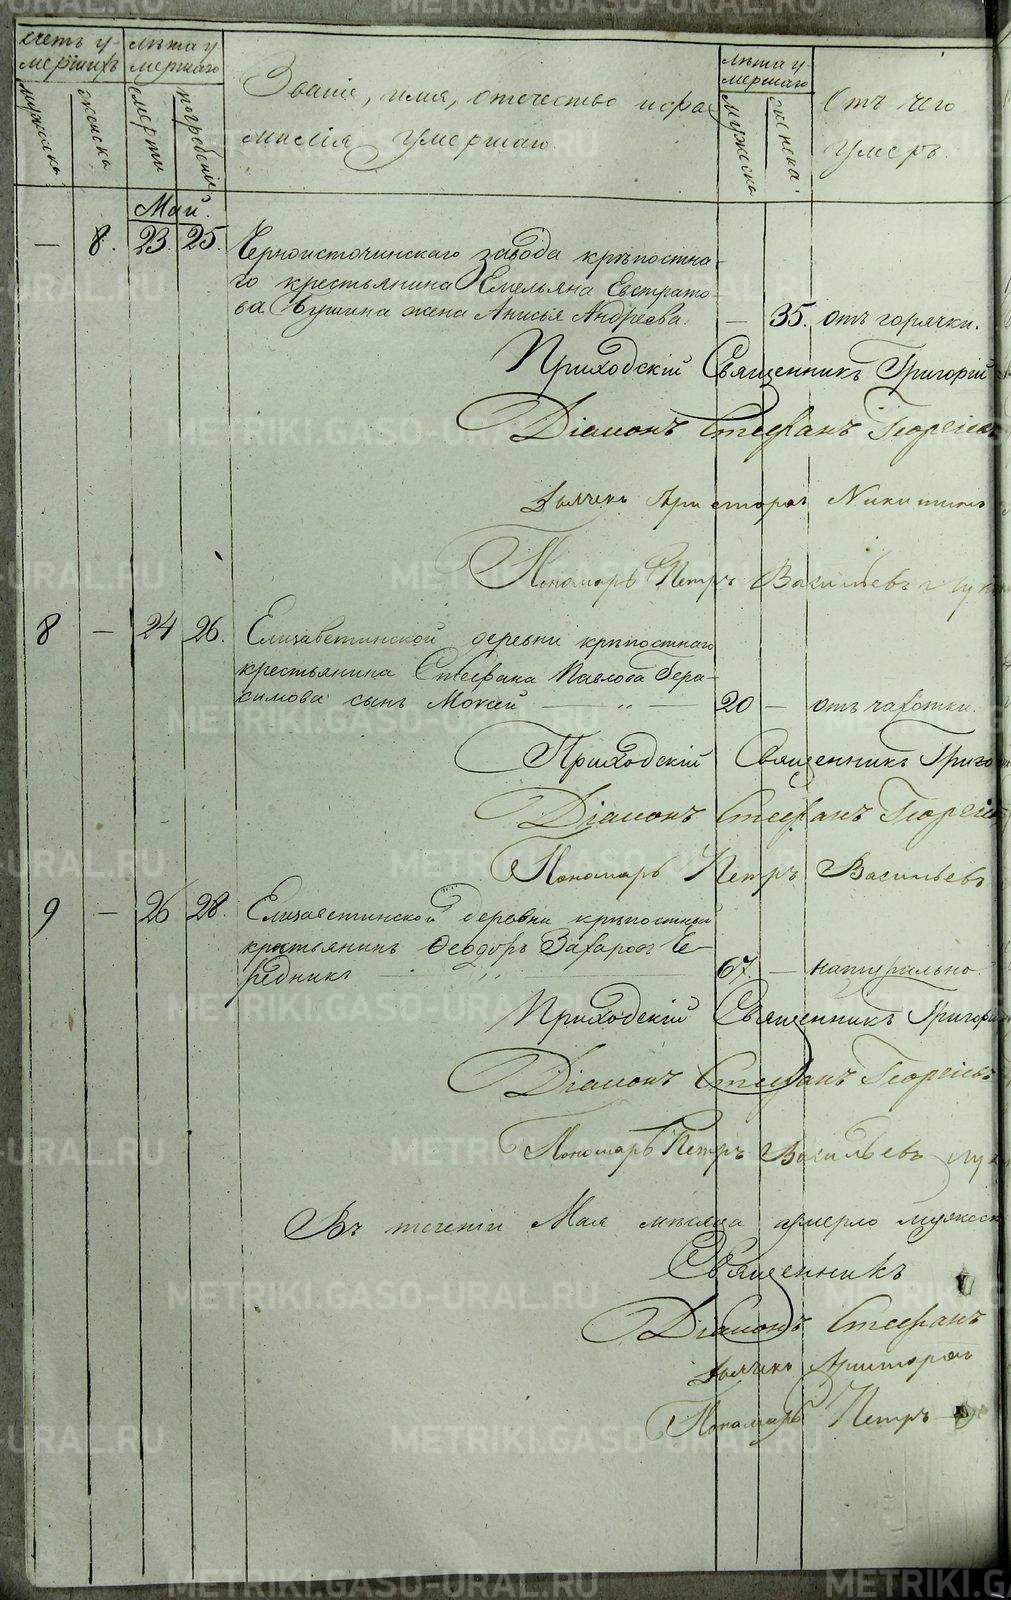 счетъ у-
мершихъ
мужеска
женска
лѣта у
мершаго
смерти
погребенія
Званіе, имя, отечество и фа
милія умершаго.
лѣта у-
мершаго
мужеска
женска.
Отъ чего
умеръ.
Май.
— 8. 23. 25. Черноисточинскаго завода крѣпостна-
го крестьянина Емельяна Евстрато-
ва Лушина жена Анисья Андреева. — 35. отъ горячки.
Приходскій Священникъ Григорій
Діаконъ Стефанъ Георгіевъ
Дьячекъ Никитинъ
Пономарь Петръ Васильевъ
8 — 24 26. Елизаветинской деревни крѣпостнаго
крестьянина Стефана Павлова Гера-
симова сынъ Мокей — „ — 20 — отъ чахотки.
Приходскій Священникъ Григо
Діаконъ Стефанъ Георгіе
Пономарь Петръ Васильевъ
9 — 26 28. Елизаветинской деревни крѣпостный
крестьянинъ Ѳеодоръ Захаровъ Че-
редникъ — „ 67. — натурально.
Приходскій Священникъ Григорі
Діаконъ Стефанъ Георгіевъ
Пономарь Петръ Васильевъ
Въ теченіи Мая мѣсяца умерло мужеск
Священникъ
Діаконъ Стефанъ
Дьячекъ
Пономарь Петръ
METRIKI.GASO-URAL.RU